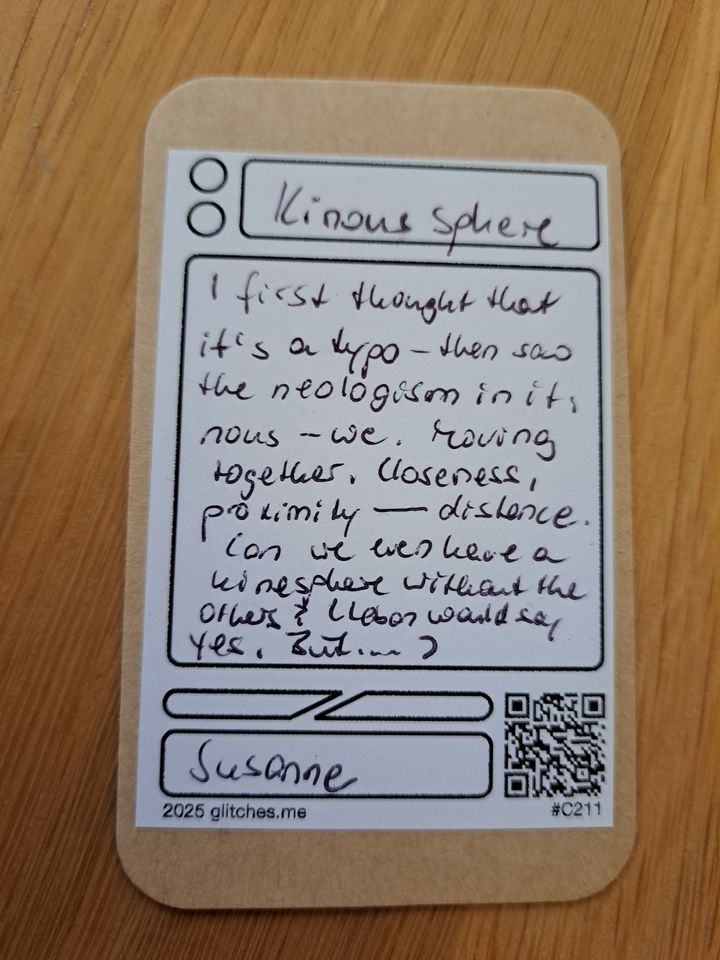 Kinous sphere
I first thought that
it's a typo – then saw
the neologism in it,
nous – we. Moving
together. Closeness,
proximity — distance.
Can we even have a
kinesphere without the
others? would say
yes. But...
Susanne
2025 glitches.me
#C211